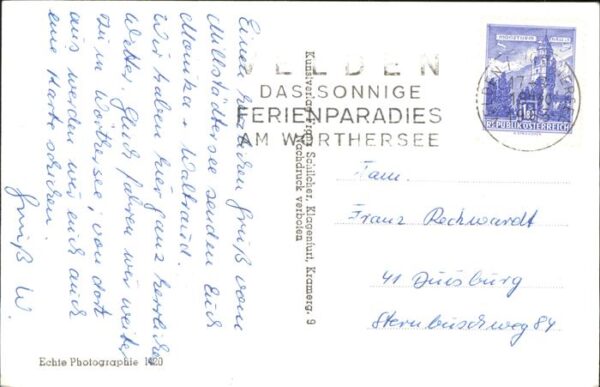 Einen herzlichen Gruß vom
Millstättersee senden Euch
Monika + Waltraud.
Wir haben hier ganz herrliches
Wetter. Gleich fahren wir weiter
zum Wörthersee, von dort
aus werden wir euch auch
eine Karte schicken.
Gruß W.
Echte Photographie 1420
Kunstverlag Franz Schilcher, Klagenfurt, Kramerg. 9
Nachdruck verboten
VELDEN
DAS SONNIGE
FERIENPARADIES
AM WÖRTHERSEE
MÜNZTURM HALL
REPUBLIK ÖSTERREICH
Fam.
Franz Rechwardt
41 Duisburg
Sternbuschweg 84